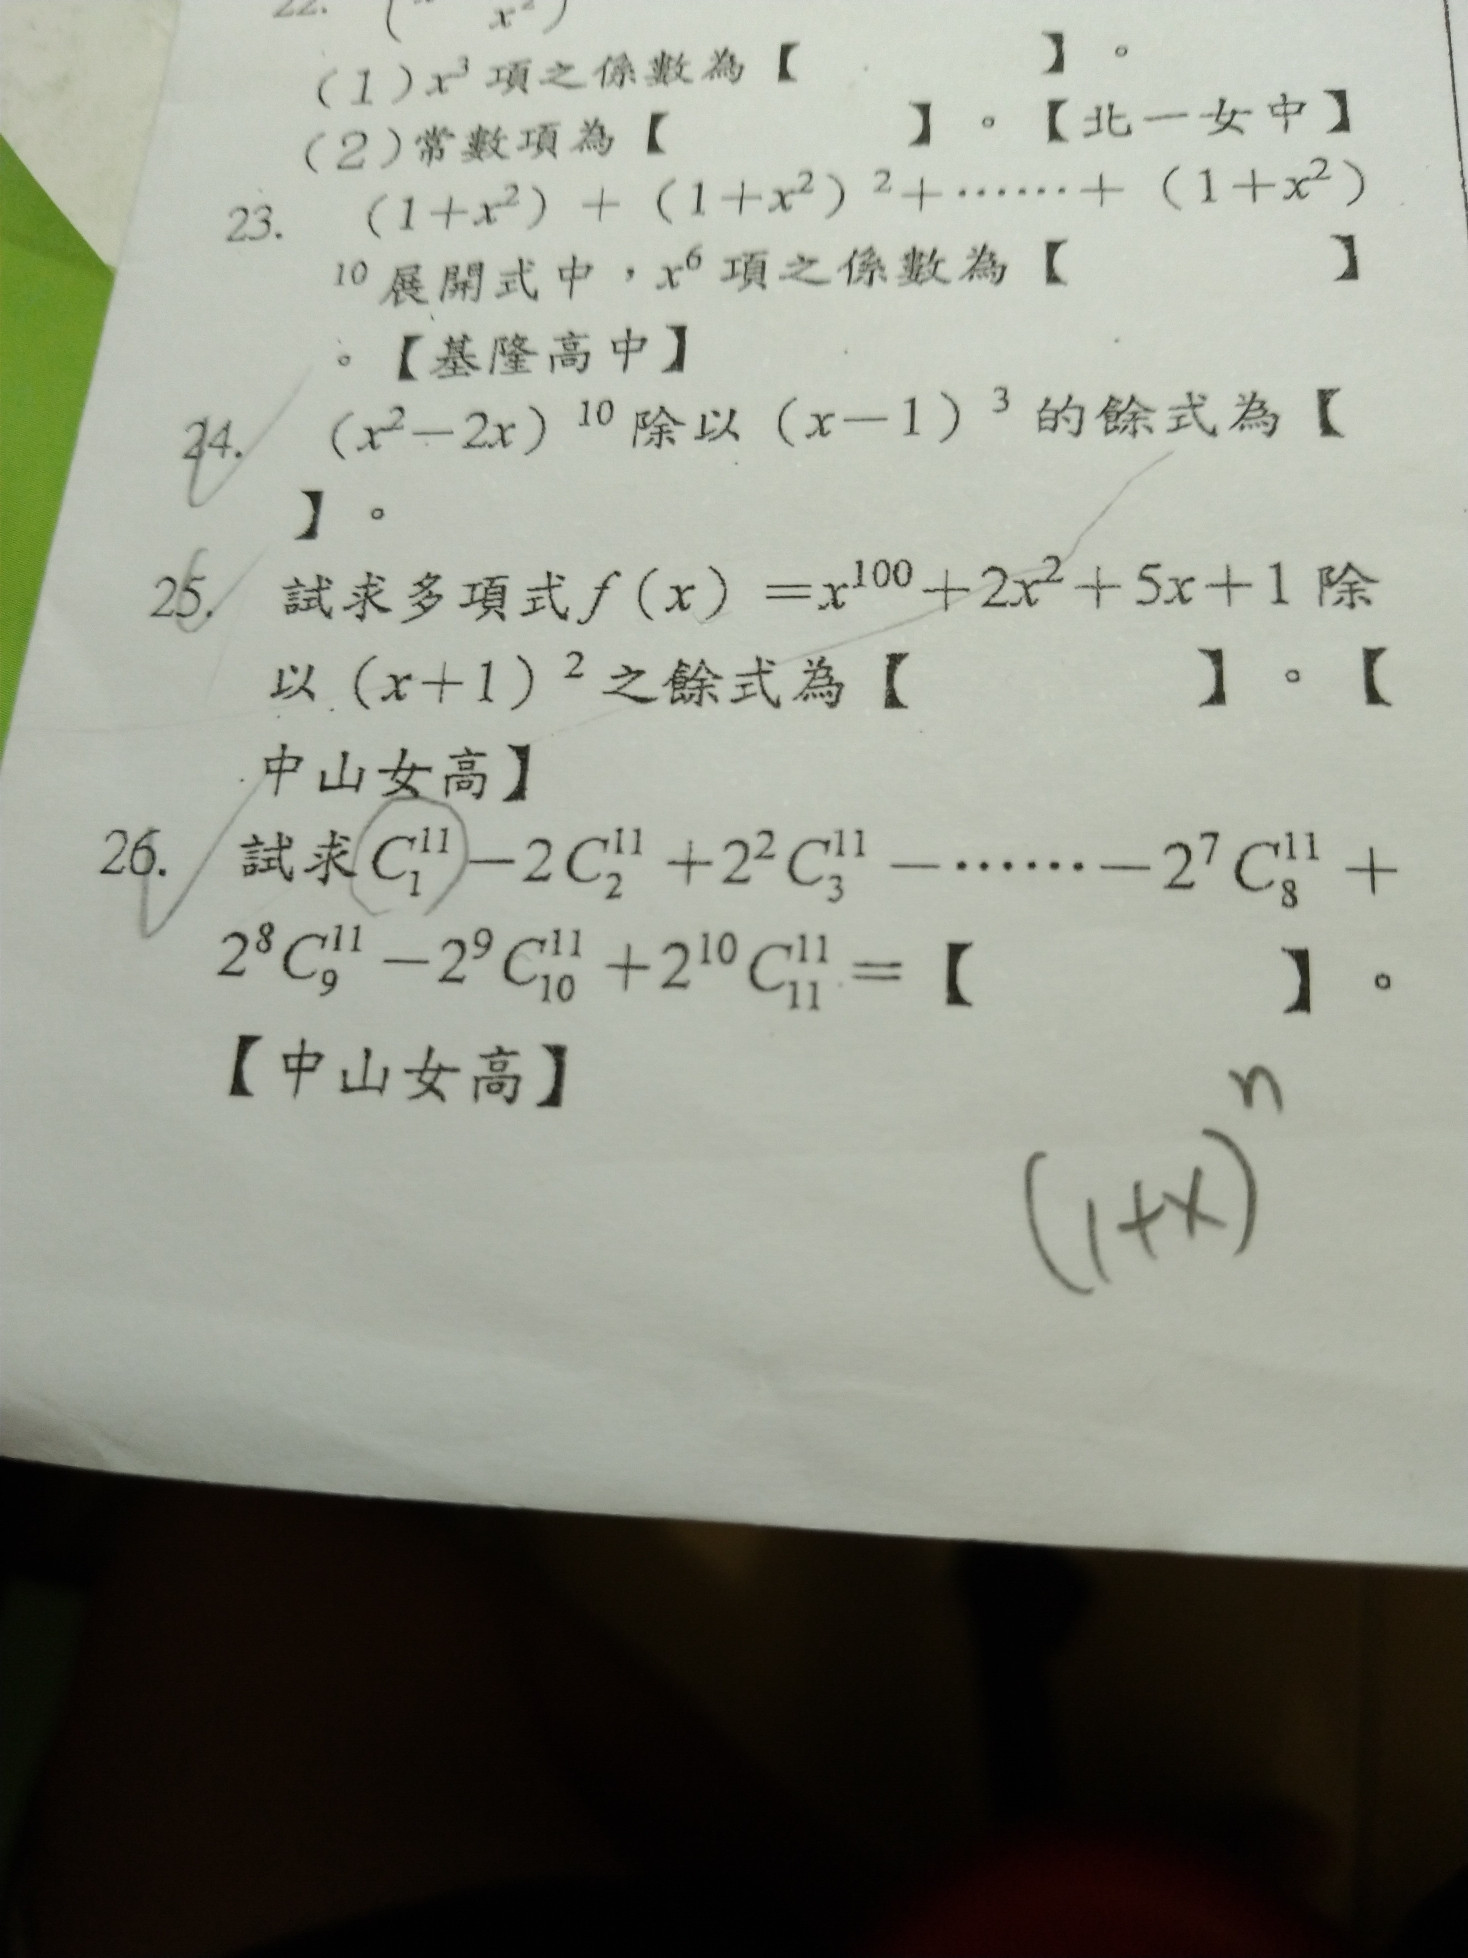 22.
(1) x³ 項之係數為【 】。
(2) 常數項為【 】。【北一女中】
23. (1+x²) + (1+x²) ²+⋯⋯+ (1+x²)
¹⁰ 展開式中,x⁶ 項之係數為【 】
。【基隆高中】
24. (x²−2x) ¹⁰ 除以 (x−1) ³ 的餘式為【
】。
25. 試求多項式 f (x) =x¹⁰⁰+2x²+5x+1 除
以 (x+1) ² 之餘式為【 】。【
中山女高】
26. 試求 C₁¹¹−2C₂¹¹+2²C₃¹¹−⋯⋯−2⁷C₈¹¹+
2⁸C₉¹¹−2⁹C₁₀¹¹+2¹⁰C₁₁¹¹=【 】。
【中山女高】
(1+x)ⁿ